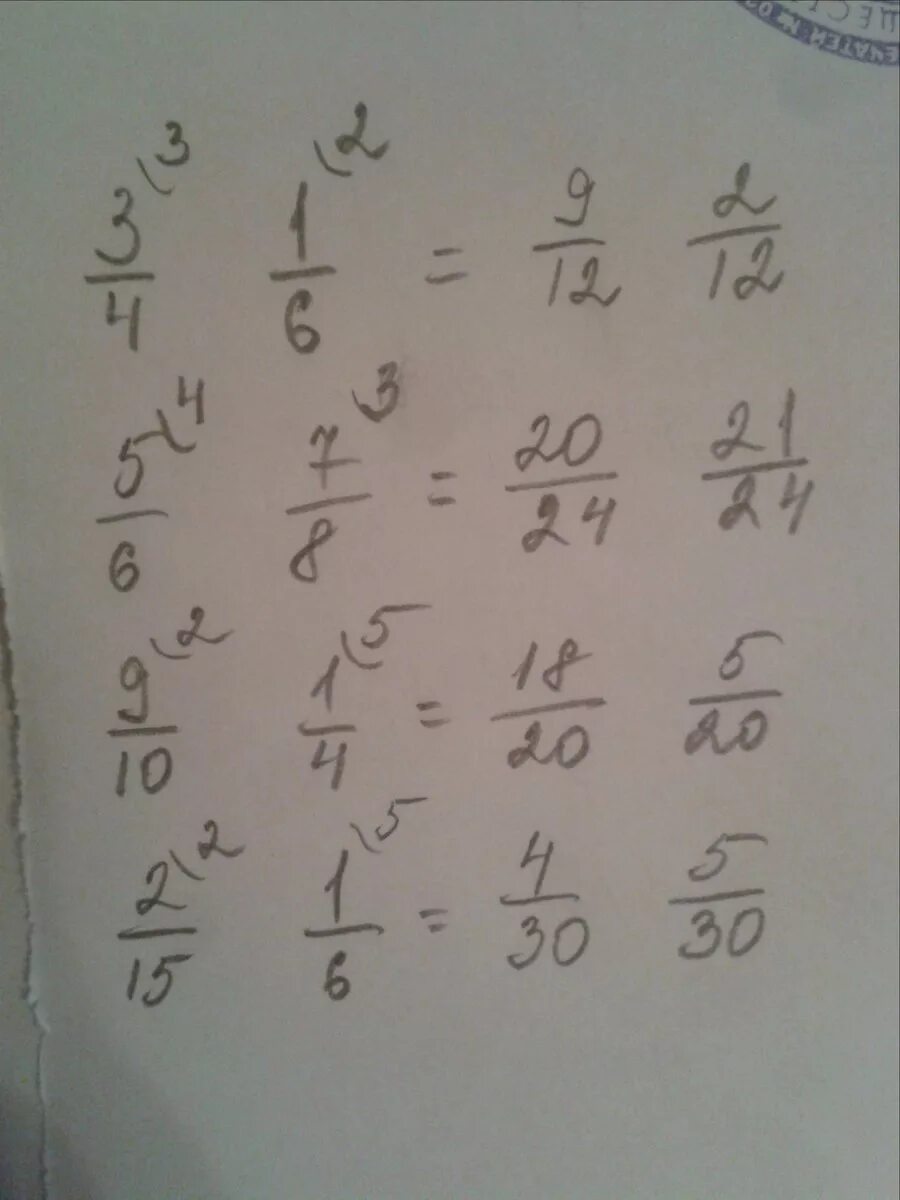 ЧАТЕЙ №
3/4 (3 1/6 (2 = 9/12 2/12
5/6 (4 7/8 (3 = 20/24 21/24
9/10 (2 1/4 (5 = 18/20 5/20
2/15 (2 1/6 (5 = 4/30 5/30